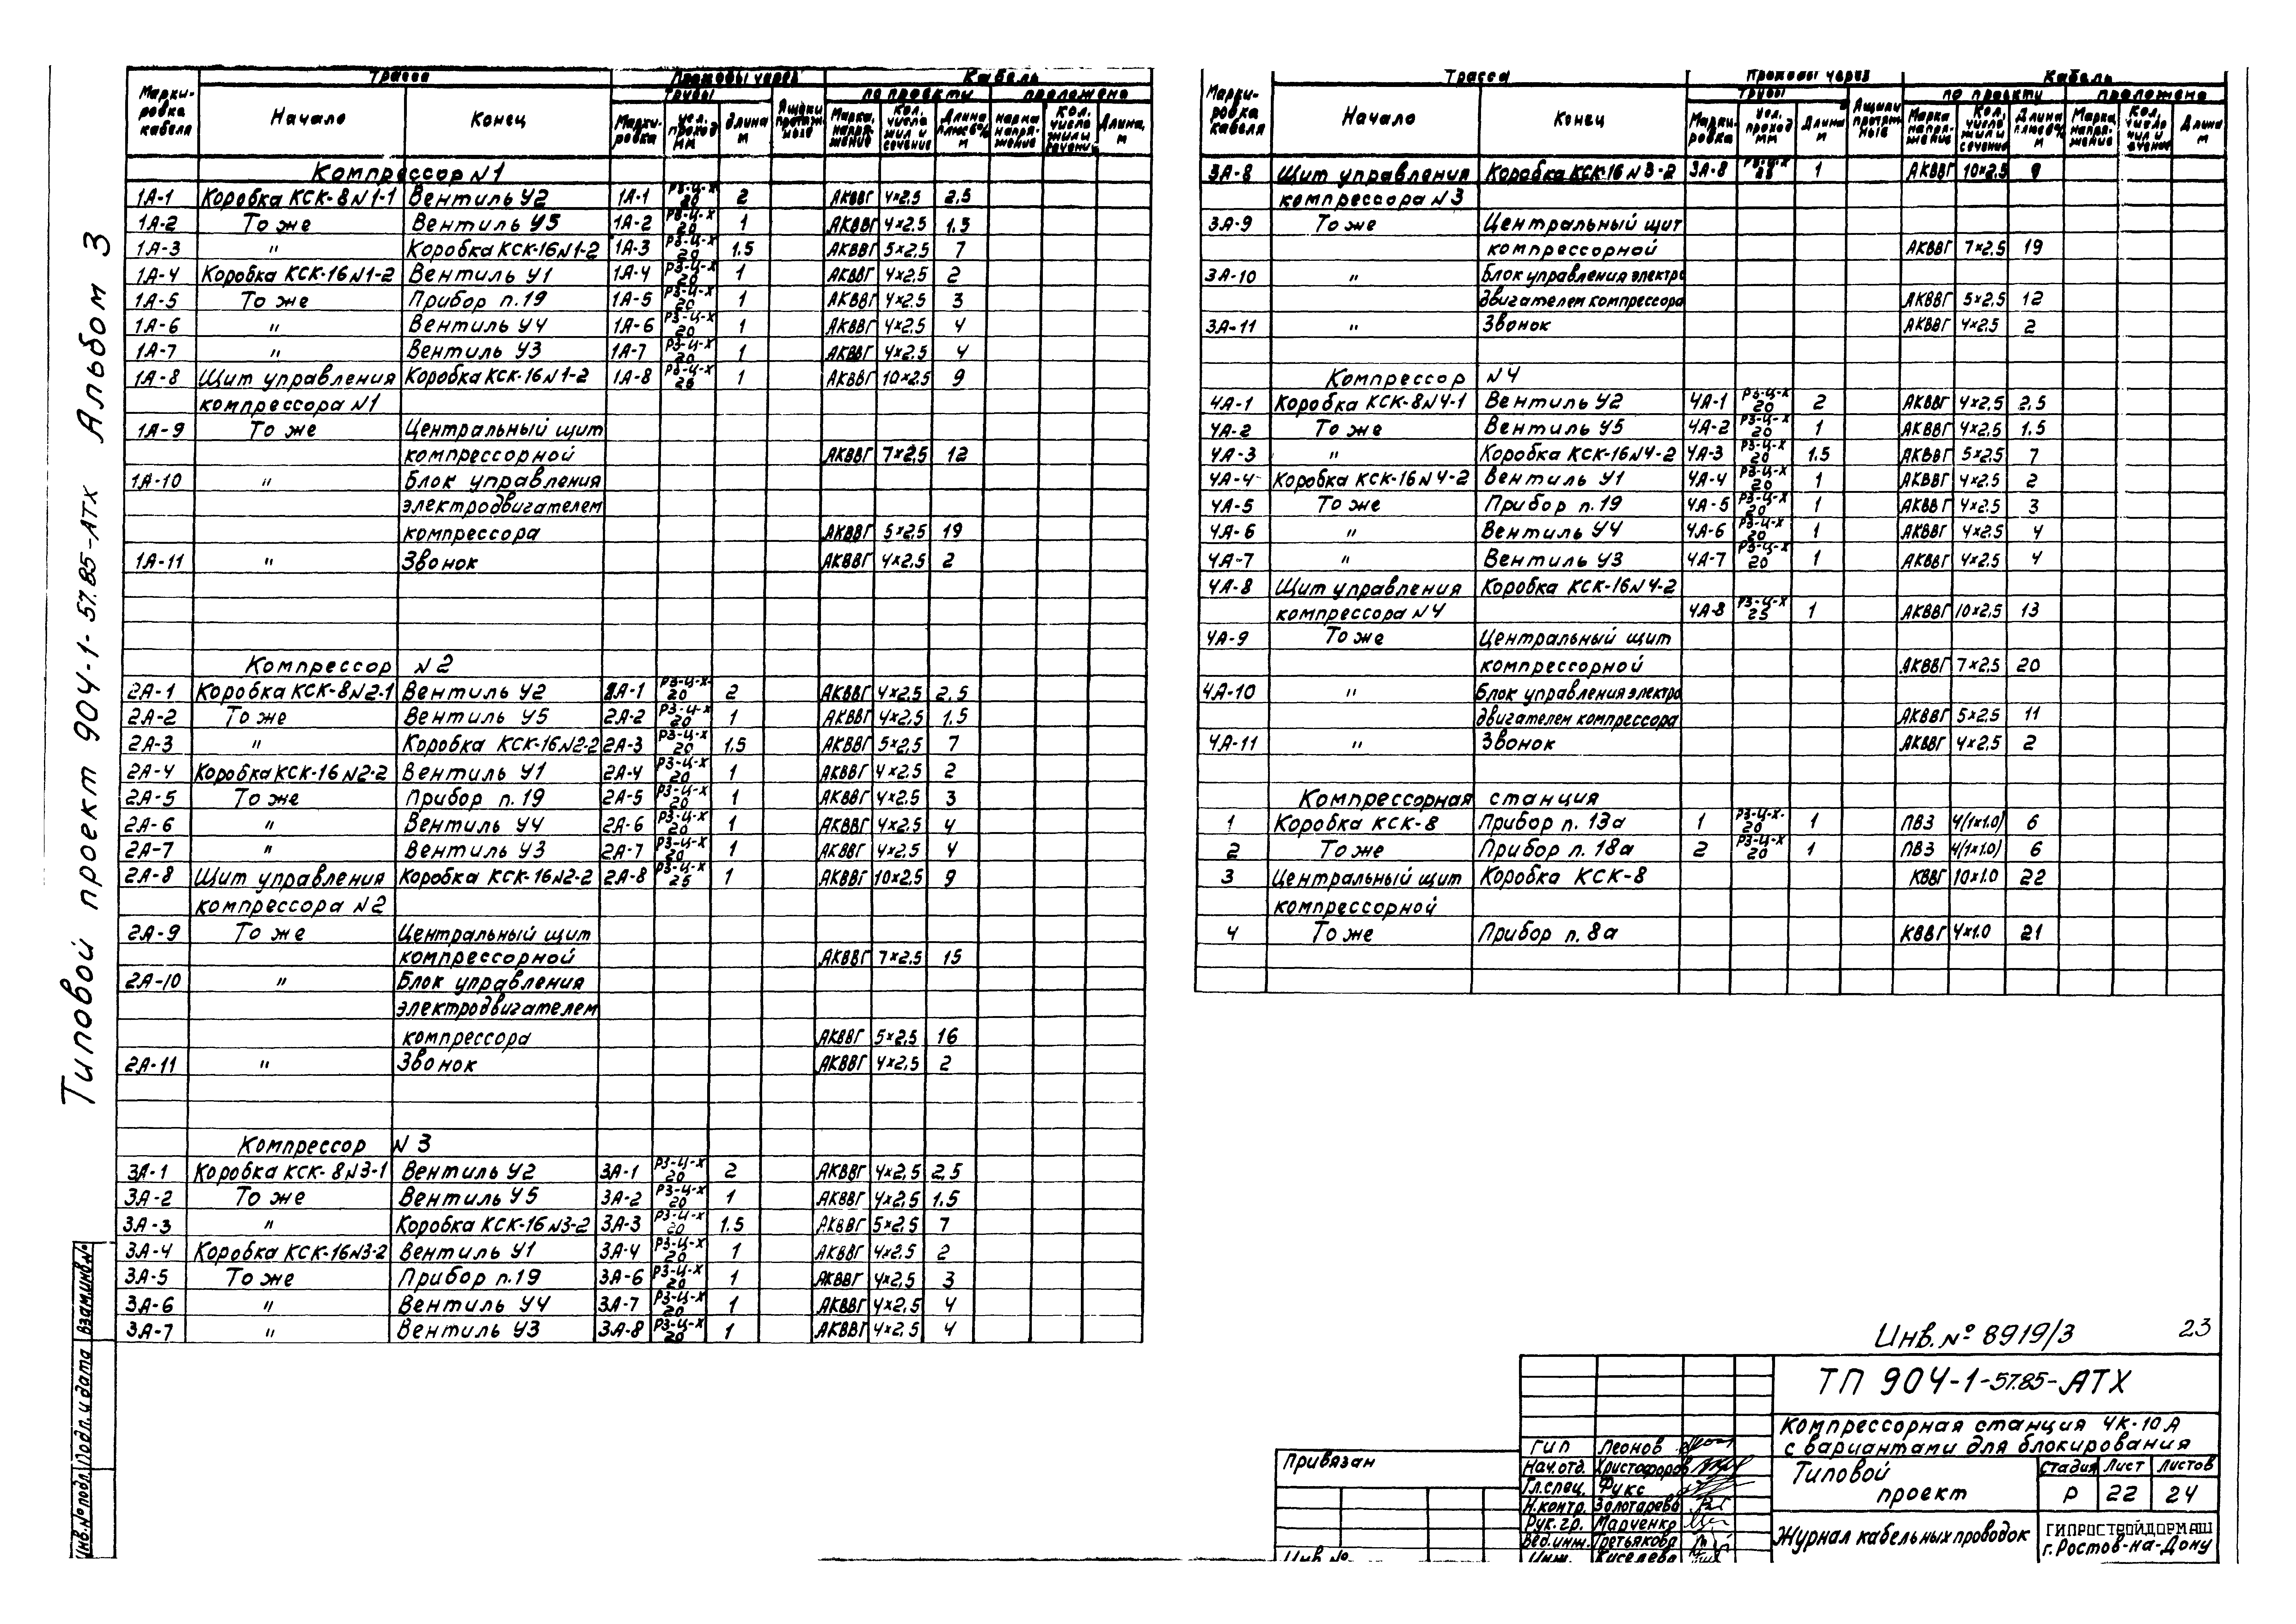 Типовой проект 904-1-57.85-АТХ Альбом 3
Марки-ровка кабеля Трасса Проходы через Кабель
Начало Конец Трубы Ящики протяж-ные по проекту проложено
Марки-ровка усл. проход мм Длина м Марка, напря-жение Кол., число жил и сечение Длина плюс 6% м марка напря-жение Кол. число жил и сечение Длина, м
Компрессор N1
1А-1 Коробка КСК-8N1-1 Вентиль У2 1А-1 РЗ-Ц-Х 20 2 АКВВГ 4×2,5 2,5
1А-2 То же Вентиль У5 1А-2 РЗ-Ц-Х 20 1 АКВВГ 4×2,5 1,5
1А-3 " Коробка КСК-16N1-2 1А-3 РЗ-Ц-Х 20 1,5 АКВВГ 5×2,5 7
1А-4 Коробка КСК-16N1-2 Вентиль У1 1А-4 РЗ-Ц-Х 20 1 АКВВГ 4×2,5 2
1А-5 То же Прибор п.19 1А-5 РЗ-Ц-Х 20 1 АКВВГ 4×2,5 3
1А-6 " Вентиль У4 1А-6 РЗ-Ц-Х 20 1 АКВВГ 4×2,5 4
1А-7 " Вентиль У3 1А-7 РЗ-Ц-Х 20 1 АКВВГ 4×2,5 4
1А-8 Щит управления Коробка КСК-16N1-2 1А-8 РЗ-Ц-Х 25 1 АКВВГ 10×2,5 9
компрессора N1
1А-9 То же Центральный щит
компрессорной АКВВГ 7×2,5 12
1А-10 " Блок управления
электродвигателем
компрессора АКВВГ 5×2,5 19
1А-11 " Звонок АКВВГ 4×2,5 2
Компрессор N2
2А-1 Коробка КСК-8N2-1 Вентиль У2 2А-1 РЗ-Ц-Х 20 2 АКВВГ 4×2,5 2,5
2А-2 То же Вентиль У5 2А-2 РЗ-Ц-Х 20 1 АКВВГ 4×2,5 1,5
2А-3 " Коробка КСК-16N2-2 2А-3 РЗ-Ц-Х 20 1,5 АКВВГ 5×2,5 7
2А-4 Коробка КСК-16N2-2 Вентиль У1 2А-4 РЗ-Ц-Х 20 1 АКВВГ 4×2,5 2
2А-5 То же Прибор п.19 2А-5 РЗ-Ц-Х 20 1 АКВВГ 4×2,5 3
2А-6 " Вентиль У4 2А-6 РЗ-Ц-Х 20 1 АКВВГ 4×2,5 4
2А-7 " Вентиль У3 2А-7 РЗ-Ц-Х 20 1 АКВВГ 4×2,5 4
2А-8 Щит управления Коробка КСК-16N2-2 2А-8 РЗ-Ц-Х 25 1 АКВВГ 10×2,5 9
компрессора N2
2А-9 То же Центральный щит
компрессорной АКВВГ 7×2,5 15
2А-10 " Блок управления
электродвигателем
компрессора АКВВГ 5×2,5 16
2А-11 " Звонок АКВВГ 4×2,5 2
Компрессор N3
3А-1 Коробка КСК-8N3-1 Вентиль У2 3А-1 РЗ-Ц-Х 20 2 АКВВГ 4×2,5 2,5
3А-2 То же Вентиль У5 3А-2 РЗ-Ц-Х 20 1 АКВВГ 4×2,5 1,5
3А-3 " Коробка КСК-16N3-2 3А-3 РЗ-Ц-Х 20 1,5 АКВВГ 5×2,5 7
3А-4 Коробка КСК-16N3-2 Вентиль У1 3А-4 РЗ-Ц-Х 20 1 АКВВГ 4×2,5 2
3А-5 То же Прибор п.19 3А-6 РЗ-Ц-Х 20 1 АКВВГ 4×2,5 3
3А-6 " Вентиль У4 3А-7 РЗ-Ц-Х 20 1 АКВВГ 4×2,5 4
3А-7 " Вентиль У3 3А-8 РЗ-Ц-Х 20 1 АКВВГ 4×2,5 4
Марки-ровка кабеля Трасса Проходы через Кабель
Начало Конец Трубы Ящики протяж-ные по проекту проложено
Марки-ровка усл. проход мм Длина м Марка напря-жение Кол, число жил и сечение Длина плюс 6% м Марка, напря-жение Кол, число жил и сечение Длина м
3А-8 Щит управления Коробка КСК-16N3-2 3А-8 РЗ-Ц-Х 25 1 АКВВГ 10×2,5 9
компрессора N3
3А-9 То же Центральный щит
компрессорной АКВВГ 7×2,5 19
3А-10 " Блок управления электро
двигателем компрессора АКВВГ 5×2,5 12
3А-11 " Звонок АКВВГ 4×2,5 2
Компрессор N4
4А-1 Коробка КСК-8N4-1 Вентиль У2 4А-1 РЗ-Ц-Х 20 2 АКВВГ 4×2,5 2,5
4А-2 То же Вентиль У5 4А-2 РЗ-Ц-Х 20 1 АКВВГ 4×2,5 1,5
4А-3 " Коробка КСК-16N4-2 4А-3 РЗ-Ц-Х 20 1,5 АКВВГ 5×2,5 7
4А-4 Коробка КСК-16N4-2 Вентиль У1 4А-4 РЗ-Ц-Х 20 1 АКВВГ 4×2,5 2
4А-5 То же Прибор п.19 4А-5 РЗ-Ц-Х 20 1 АКВВГ 4×2,5 3
4А-6 " Вентиль У4 4А-6 РЗ-Ц-Х 20 1 АКВВГ 4×2,5 4
4А-7 " Вентиль У3 4А-7 РЗ-Ц-Х 20 1 АКВВГ 4×2,5 4
4А-8 Щит управления Коробка КСК-16N4-2
компрессора N4 4А-8 РЗ-Ц-Х 25 1 АКВВГ 10×2,5 13
4А-9 То же Центральный щит
компрессорной АКВВГ 7×2,5 20
4А-10 " Блок управления электро
двигателем компрессора АКВВГ 5×2,5 11
4А-11 " Звонок АКВВГ 4×2,5 2
Компрессорная станция
1 Коробка КСК-8 Прибор п. 13а 1 РЗ-Ц-Х- 20 1 ПВ3 4(1×1.0) 6
2 То же Прибор п. 18а 2 РЗ-Ц-Х 20 1 ПВ3 4(1×1.0) 6
3 Центральный щит Коробка КСК-8 КВВГ 10×1.0 22
компрессорной
4 То же Прибор п. 8а КВВГ 4×1.0 21
Инв.№ подл. Подп. и дата Взам.инв.№
Инв.№ 8919/3 23
ТП 904-1-57.85-АТХ
Компрессорная станция 4К-10А
с вариантами для блокирования
Типовой проект
Стадия Лист Листов
Р 22 24
Журнал кабельных проводок
ГИПРОСТРОЙДОРМАШ
г.Ростов-на-Дону
Привязан
Инв №
ГИП Леонов
Нач.отд. Христофоров
Гл.спец. Фукс
Н.контр. Золотарева
Рук.гр. Марченко
Вед.инж. Третьякова
Инж. Киселева